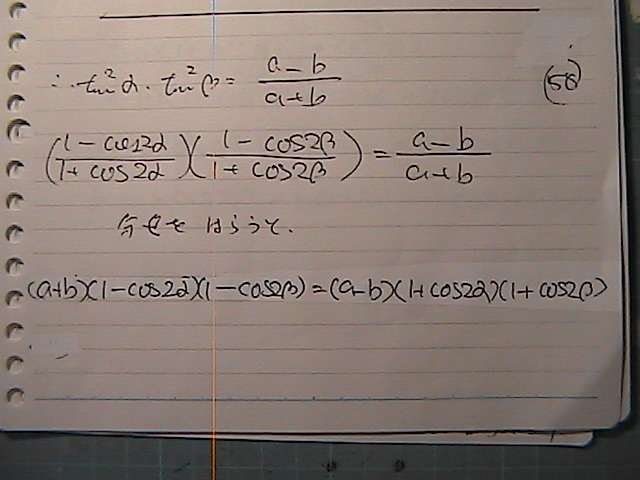 ∴ tan²α・tan²β = (a-b)/(a+b) (58)
((1-cos2α)/(1+cos2α))((1-cos2β)/(1+cos2β)) = (a-b)/(a+b)
分母をはらうと.
(a+b)(1-cos2α)(1-cos2β)=(a-b)(1+cos2α)(1+cos2β)